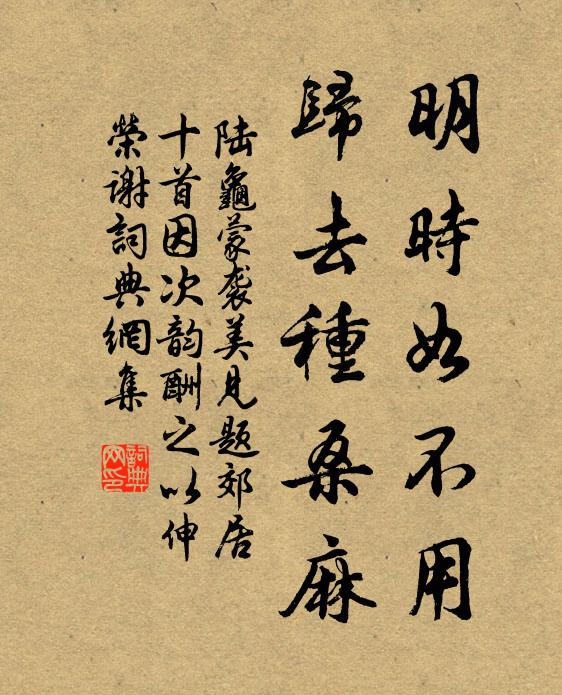 明時如不用
歸去種桑麻
陆龜蒙袭美見题郊居
十首因次韵酬之以伸
榮谢詞典網集
詞典网印